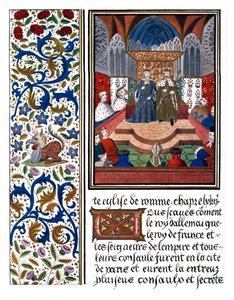 te eglise de romme
Ous saues cōment
le roy dallemaigne
le roy de france et
les seigneurs de lempire et tous
leurs consaulx furent en la cite
de et eurent la entreux
pluseurs consaulx et